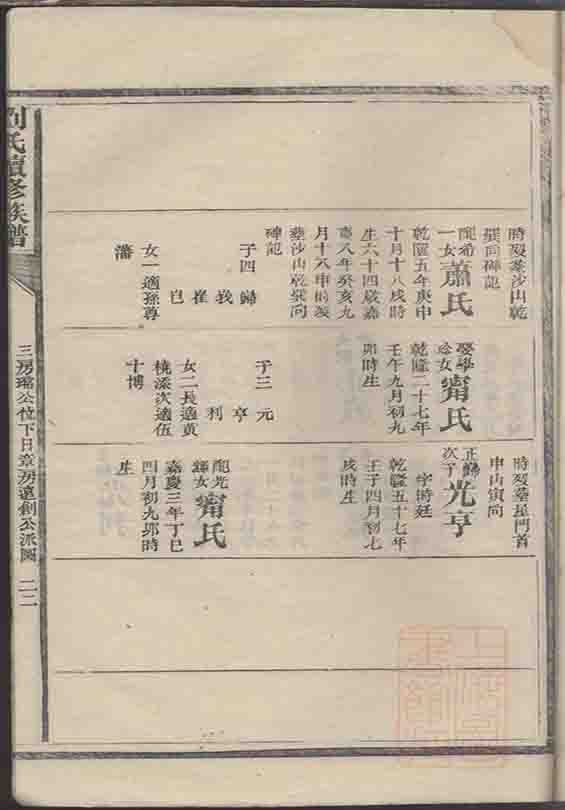 時歿墓沙山乾
巽向碑記
配希
一女
蕭氏
乾隆五年庚申
十月十八戌時
生六十四歲嘉
慶八年癸亥九
月十八申時歿
墓沙山乾巽向
碑記
子四 歸
我
崔
女一適孫尊
藩
娶學
女
甯氏
乾隆二十七年
壬午九月初九
卯時生
子三 元
亨
利
女二長適黃
次適伍
十博
時歿墓星門首
申山寅向
正歸
次子
光亨
字時廷
乾隆五十七年
壬子四月初七
戌時生
配光
輝女
甯氏
嘉慶三年丁巳
四月初九卯時
生
劉氏續修族譜
三房璿公位下日章房遠創公派圖
二二